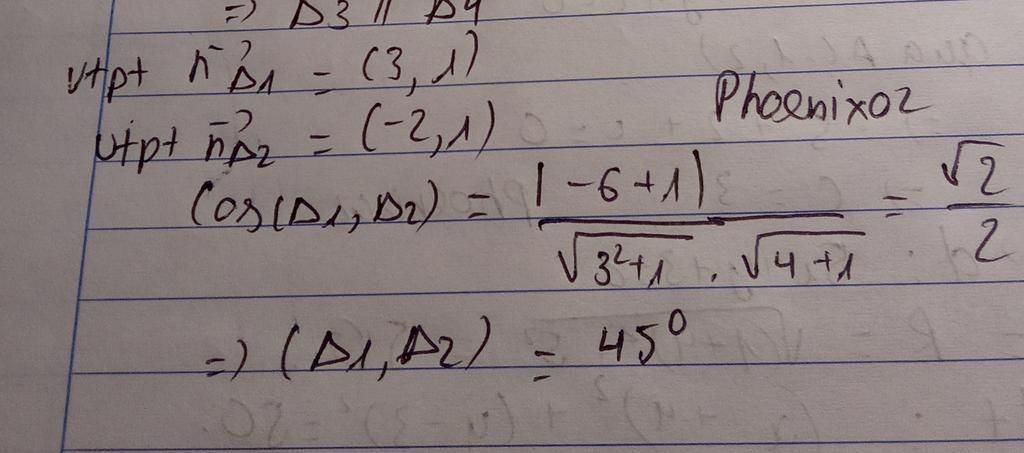 => Δ3 // Δ4
vtpt n⃗Δ1 = (3, 1)
vtpt n⃗Δ2 = (-2, 1)
Phoenix02
Cos(Δ1, Δ2) = |-6+1| / √3²+1 . √4+1 = √2 / 2
=> (Δ1, Δ2) = 45°